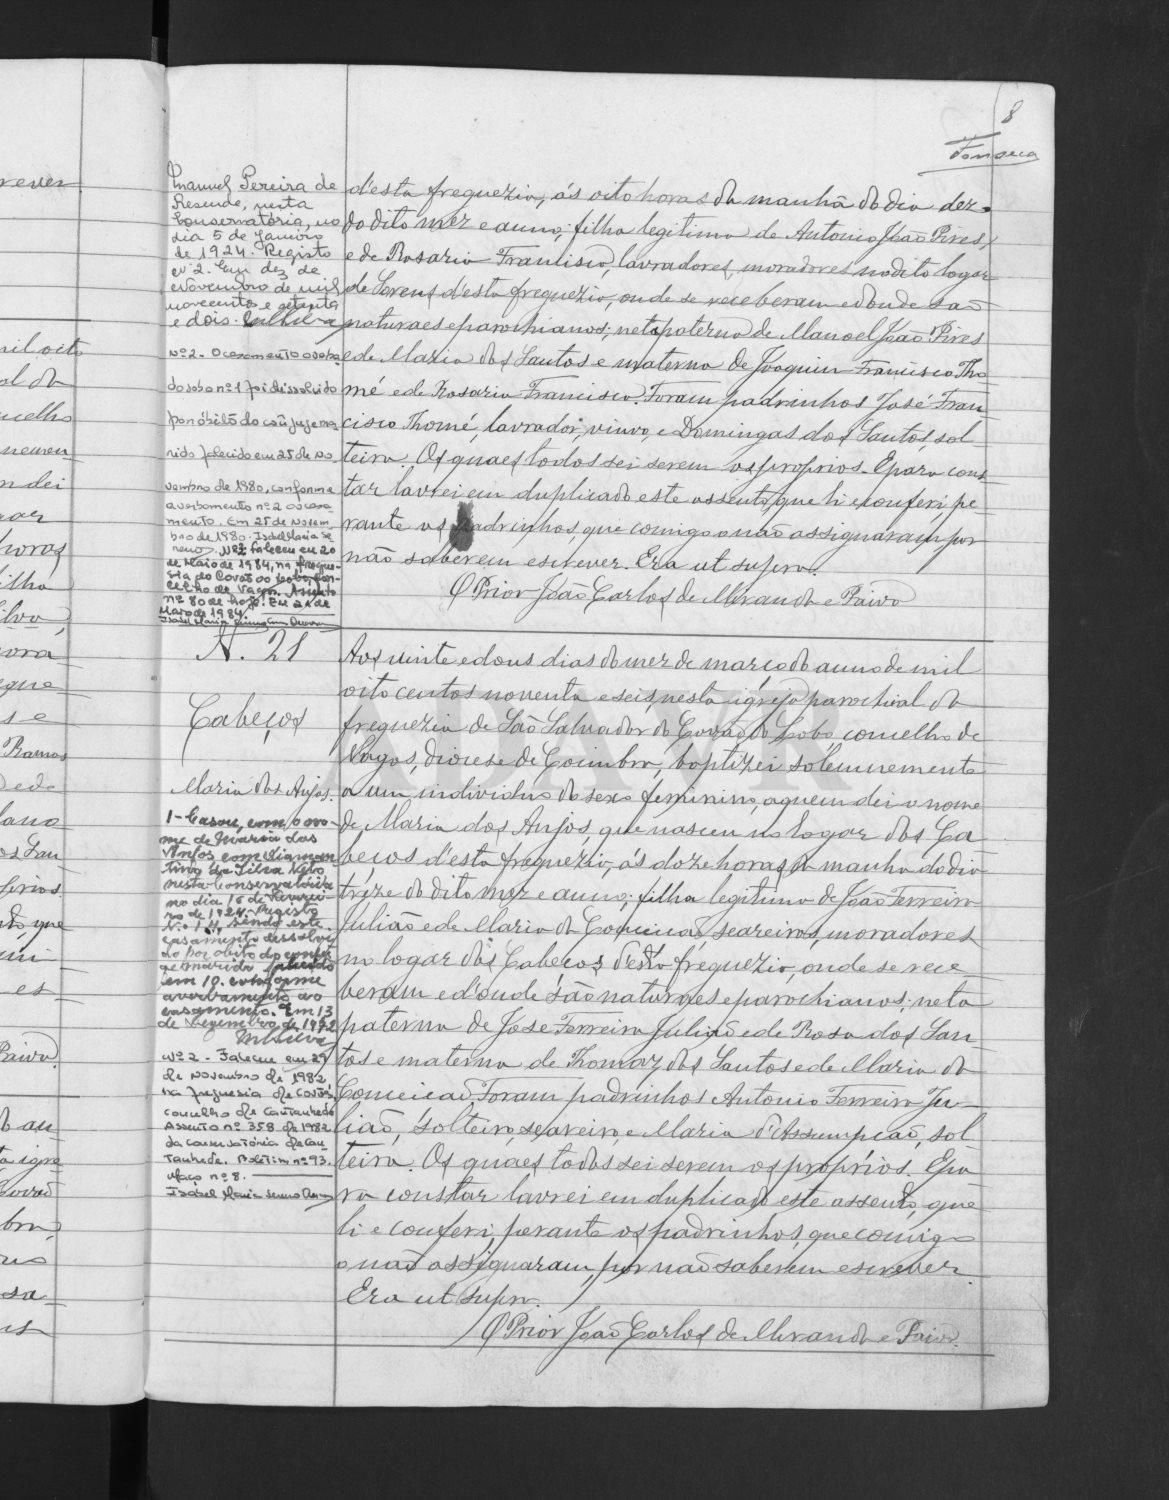 8
Fonseca
Manuel Pereira de
Resende, nesta
Conservatória, no
dia 5 de Janeiro
de 1924. Registo
nº 2. Em dez de
Novembro de mil
novecentos e setenta
e dois.
Nº 2 - O casamento averba
do sob o nº 1 foi dissolvido
por óbito do cônjuge ma
rido falecido em 25 de No
vembro de 1980, conforme
averbamento nº 2 ao casa
mento. Em 25 de Novem
bro de 1980. Isabel Maria
Nº 3 faleceu em 20
de Maio de 1984, na fregue-
sia do Covão do Lobo, con-
celho de Vagos. Assento
nº 80 de hoje. Em 21 de
Maio de 1984
d'esta freguezia, ás oito horas da manhã do dia dez
do dito mez e anno, filha legitima de Antonio João Pires,
e de Rosaria Francisco, lavradores, moradores no dito logar
de d'esta freguezia, onde se receberam e d'onde são
naturaes e parochianos; neta paterna de Manoel João Pires
e de Maria dos Santos e materna de Joaquim Francisco Tho
mé e de Rosaria Francisco. Foram padrinhos José Fran
cisco Thomé, lavrador, viuvo, e Domingas dos Santos, sol
teira. Os quaes todos sei serem os proprios. E para cons
tar lavrei em duplicado este assento, que li e conferi, pe
rante os padrinhos, que comigo o não assignaram por
não saberem escrever. Era ut supra.
O Prior João Carlos de Miranda e Paiva
N. 21
Cabeços
Maria dos Anjos.
1 - Casou, com o no-
me de Maria dos
Anjos com Diaman
tino da Silva Neto
nesta Conservatória
no dia 16 de Feverei-
ro de 1924. Registo
N. 14, sendo este
casamento dissolvi
do por óbito do conju
ge marido falecido
em 10. conforme
averbamento ao
casamento. Em 13
de Dezembro de 1972
Nº 2 - Faleceu em 29
de Novembro de 1982
na freguesia de
concelho de Cantanhede
Assento nº 358 de 1982
da conservatória de Can
tanhede. Boletim nº 93.
maço nº 8.
Isabel Maria
Aos vinte e dous dias do mez de março do anno de mil
oito centos noventa e seis, nesta igreja parochial da
freguezia de São Salvador do Covão do Lobo concelho de
Vagos, diocese de Coimbra, baptizei solemnemente
a um individuo do sexo feminino, a quem dei o nome
de Maria dos Anjos, que nasceu no logar dos Ca
beços d'esta freguezia, ás doze horas da manhã do dia
treze do dito mez e anno, filha legitima de João Ferreira
Julião e de Maria da Conceição, seareiros, moradores
no logar dos Cabeços d'esta freguezia, onde se rece
beram e d'onde são naturaes e parochianos; neta
paterna de José Ferreira Julião e de Rosa dos San
tos e materna de Thomaz dos Santos e de Maria da
Conceição. Foram padrinhos Antonio Ferreira Ju
lião, solteiro, seareiro, e Maria d'Assumpção, sol
teira. Os quaes todos sei serem os proprios. E pa
ra constar lavrei em duplicado este assento, que
li e conferi, perante os padrinhos, que comigo
o não assignaram, por não saberem escrever.
Era ut supra.
O Prior João Carlos de Miranda e Paiva.